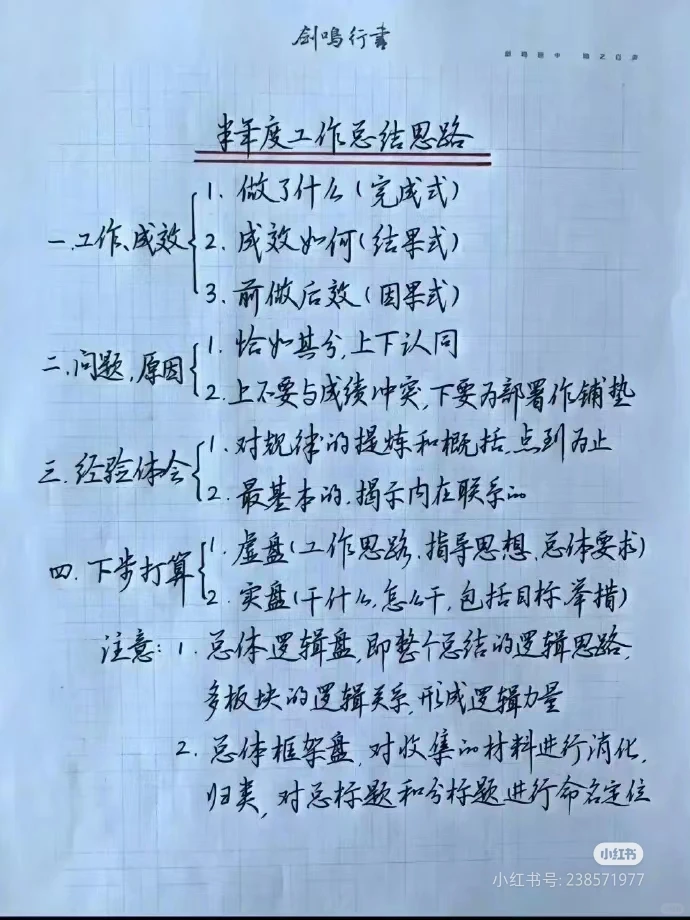 剑鸣行书
半年度工作总结思路
一.工作、成效
1. 做了什么(完成式)
2. 成效如何(结果式)
3. 前做后效(因果式)
二.问题、原因
1. 恰如其分,上下认同
2. 上不要与成绩冲突,下要为部署作铺垫
三.经验体会
1. 对规律的提炼和概括,点到为止
2. 最基本的、揭示内在联系的
四.下步打算
1. 虚盘(工作思路、指导思想、总体要求)
2. 实盘(干什么,怎么干,包括目标、举措)
注意:1. 总体逻辑盘,即整个总结的逻辑思路,
多板块的逻辑关系,形成逻辑力量
2. 总体框架盘,对收集的材料进行消化,
归类,对总标题和分标题进行命名定位
小红书
小红书号: 238571977